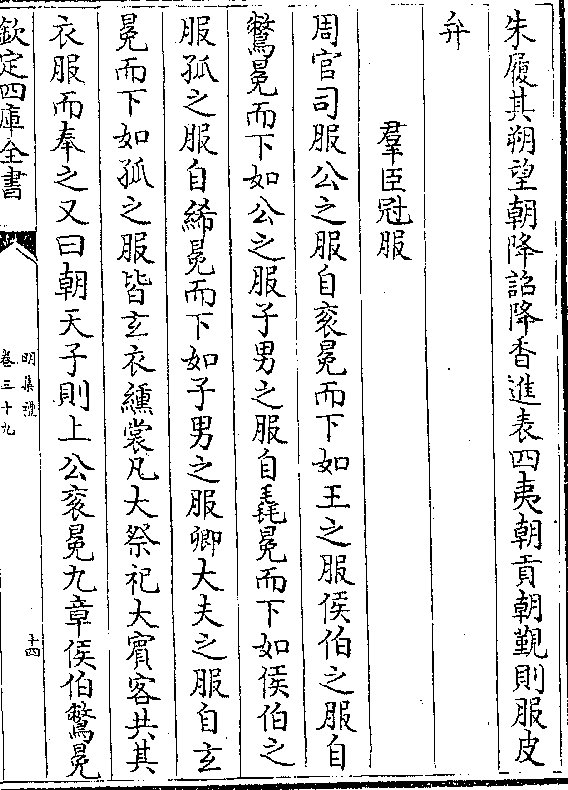 朱履其朔望朝降詔降香進表四夷朝貢朝覲則服皮
弁
羣臣冠服
周官司服公之服自衮冕而下如王之服侯伯之服自
鷩冕而下如公之服子男之服自毳冕而下如侯伯之
服孤之服自絺冕而下如子男之服卿大夫之服自玄
冕而下如孤之服皆玄衣纁裳凡大祭祀大賓客共其
衣服而奉之又曰朝天子則上公衮冕九章侯伯鷩冕
欽定四庫全書
明集禮
卷三十九
十四